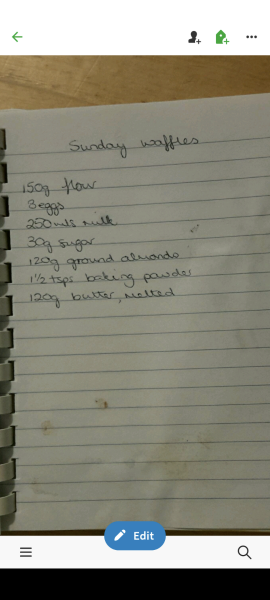 Sunday waffles
150g flour
3 eggs
250mls milk
30g sugar
120g ground almonds
1½ tsps baking powder
120g butter, melted
Edit